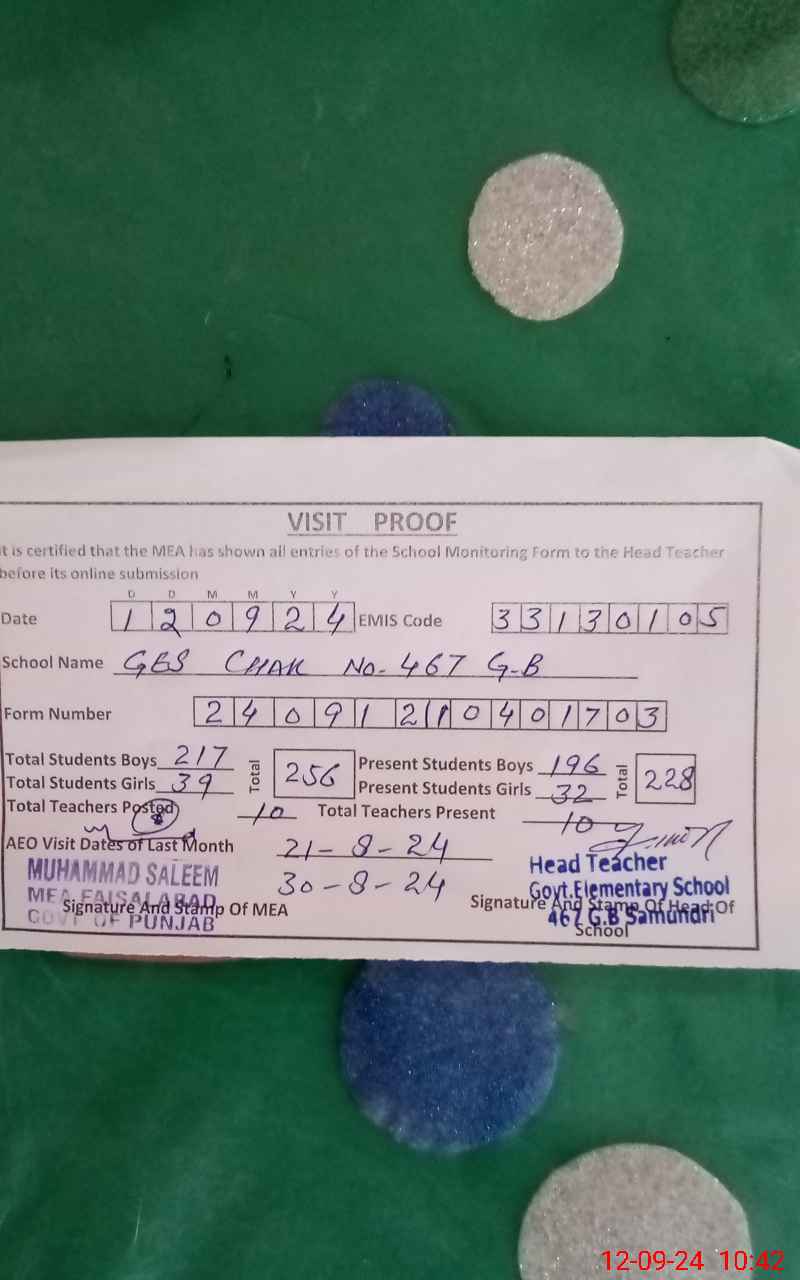 VISIT PROOF
t is certified that the MEA has shown all entries of the School Monitoring Form to the Head Teacher
before its online submission
D D M M Y Y
Date 1 2 0 9 2 4 EMIS Code 3 3 1 3 0 1 0 5
School Name GES CHAK NO. 467 G-B
Form Number 2 4 0 9 1 2 1 0 4 0 1 7 0 3
Total Students Boys 217 Total 256 Present Students Boys 196 Total 228
Total Students Girls 39 Present Students Girls 32
Total Teachers Posted 10 Total Teachers Present 10
AEO Visit Dates of Last Month 21-8-24
30-8-24
MUHAMMAD SALEEM
MEA FAISALABAD
GOVT OF PUNJAB
Signature And Stamp Of MEA
Head Teacher
Govt.Elementary School
467 G.B Samundri
Signature And Stamp Of Head Of
School
12-09-24 10:42